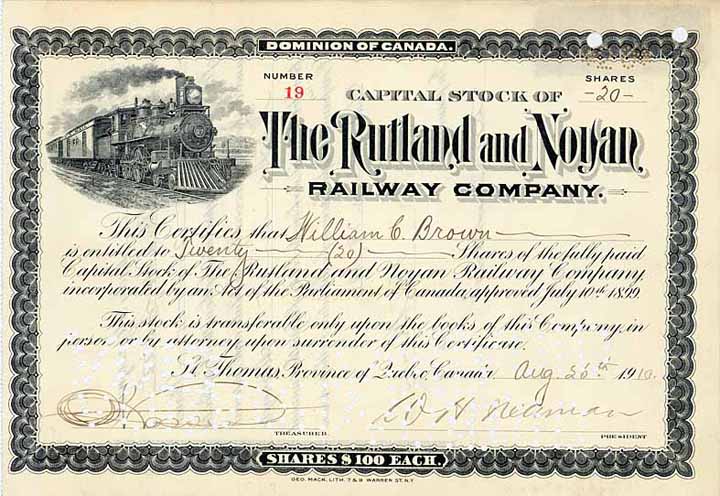 DOMINION OF CANADA.
NUMBER
19
SHARES
-20-
CAPITAL STOCK OF
The Rutland and Noyan
RAILWAY COMPANY.
This Certifies that William C. Brown
is entitled to Twenty (20) Shares of the fully paid
Capital Stock of The Rutland and Noyan Railway Company,
incorporated by an Act of the Parliament of Canada, approved July 10th 1899.
This stock is transferable only upon the books of this Company, in
person or by attorney upon surrender of this Certificate.
St. Thomas, Province of Quebec, Canada. Aug. 26th 1910.
TREASURER.
PRESIDENT
SHARES $100 EACH.
GEO. MACK, LITH. 7 & 9 WARREN ST. N.Y.